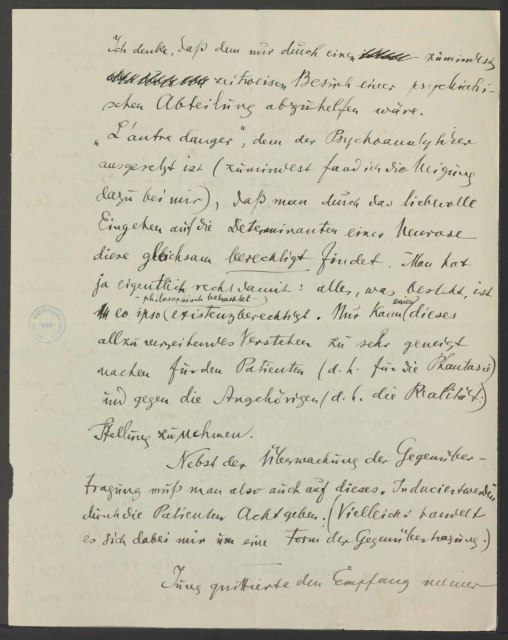 Ich denke, daß dem nur durch einen zumindest
zeitweisen Besuch einer psychiatri-
schen Abteilung abzuhelfen wäre.
„L'autre danger", dem der Psychoanalytiker
ausgesetzt ist (zumindest fand ich die Neigung
dazu bei mir), daß man durch das liebevolle
Eingehen auf die Determinanten einer Neurose
diese gleichsam berechtigt findet. Man hat
ja eigentlich recht damit: alles, was besteht, ist
– philosophisch betrachtet –
eo ipso existenzberechtigt. Nur kann einen dieses
allzu verzeihendes Verstehen zu sehr geneigt
machen für den Patienten (d. h. für die Phantasie)
und gegen die Angehörigen (d. h. die Realität)
Stellung zu nehmen.
Nebst der Überwachung der Gegenüber-
tragung muß man also auch auf dieses „Induciertwerden
durch die Patienten Acht geben. (Vielleicht handelt
es sich dabei nur um eine Form der Gegenübertragung.)
Jung quittierte den Empfang meiner